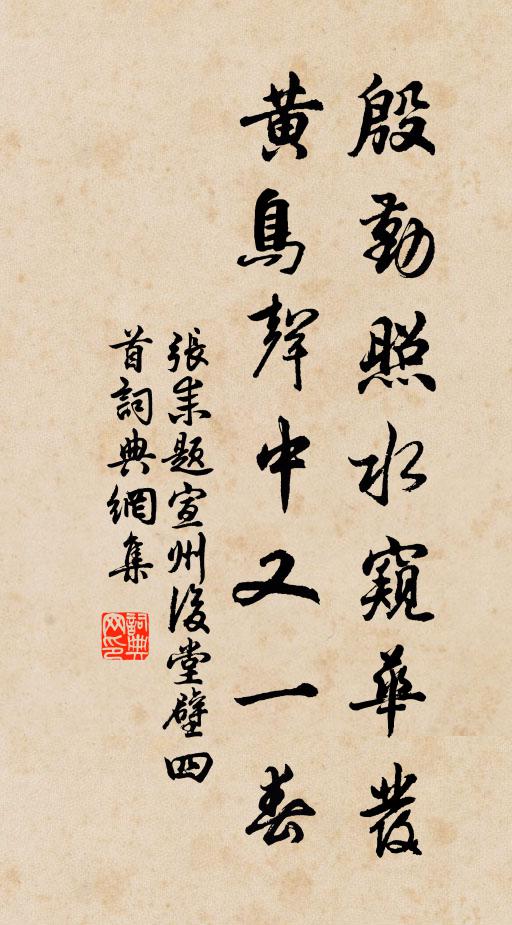 殷勤照水窺華髮
黃鳥聲中又一春
張耒題宣州後堂壁四
首詞典網集
詞典
网印